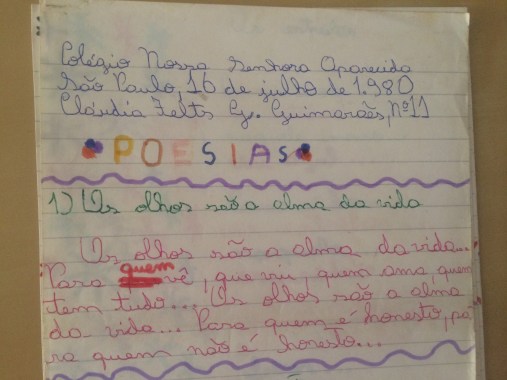 Colégio Nossa Senhora Aparecida
São Paulo, 16 de julho de 1.980
Cláudia Felts G. Guimarães, nº 11
POESIAS
1) Os olhos são a alma da vida
Os olhos são a alma da vida...
Para quem vê, que viu, quem ama, quem
tem tudo... Os olhos são a alma
da vida... Para quem é honesto, pa
ra quem não é honesto...